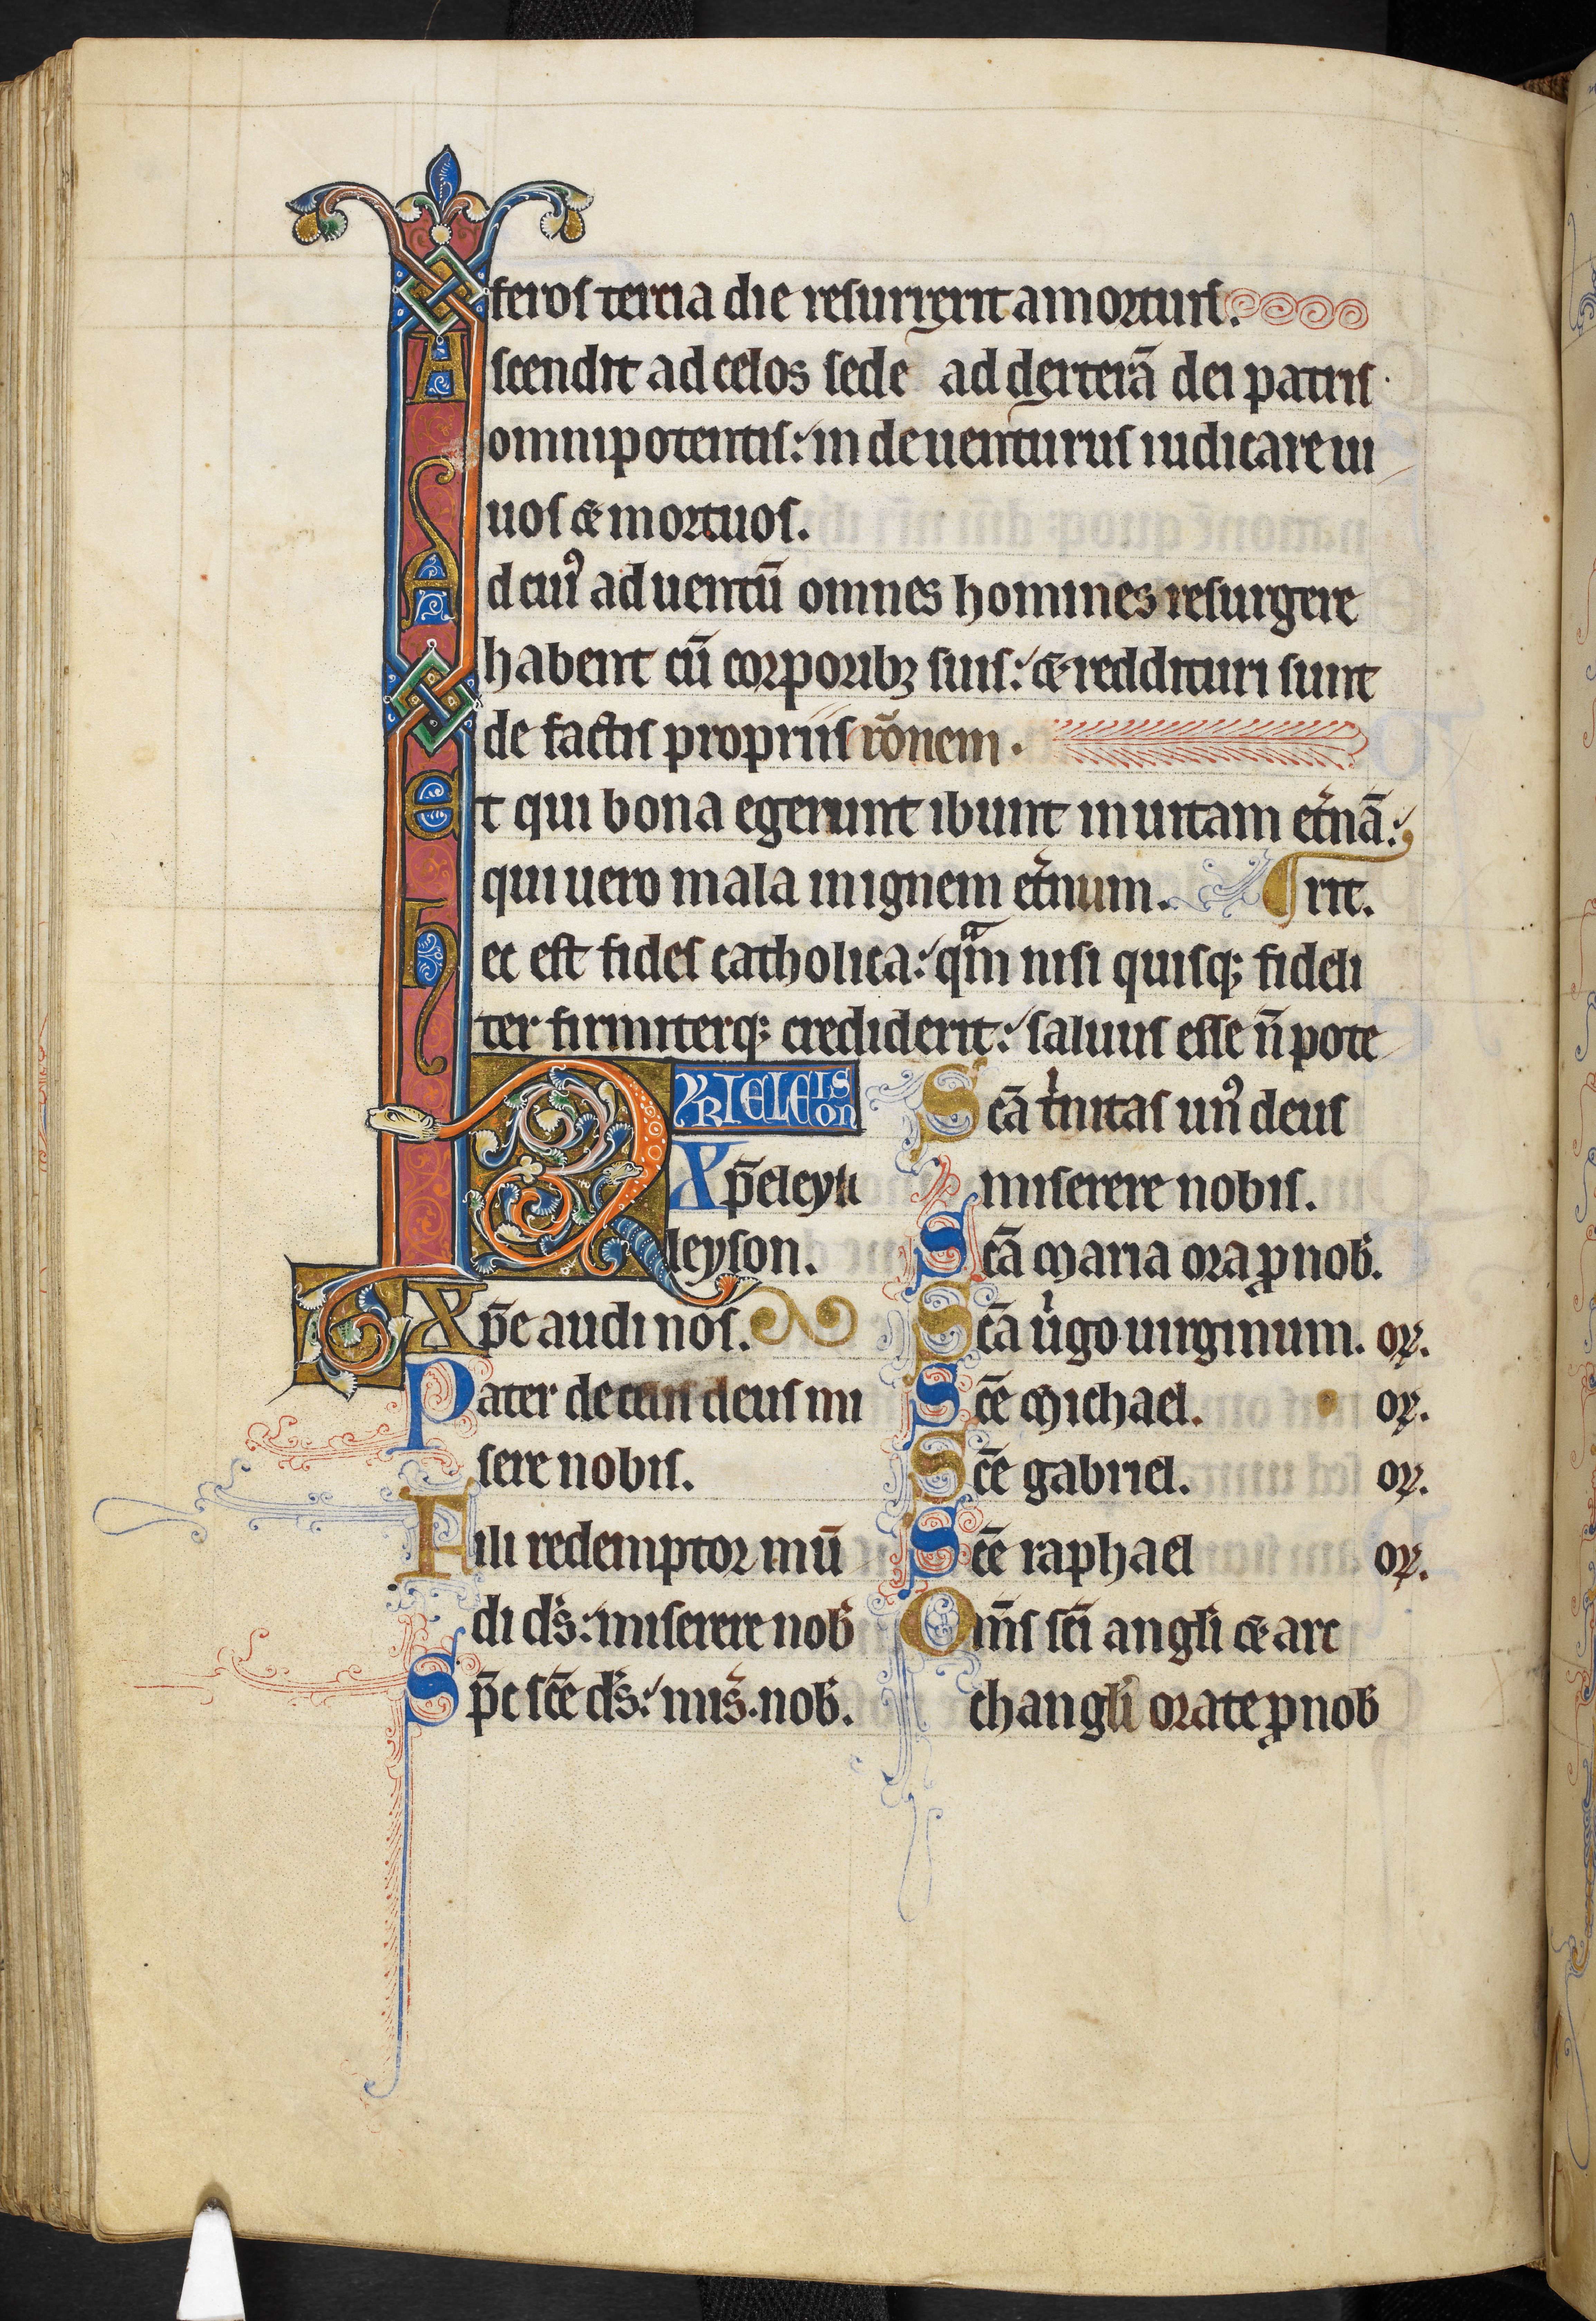 feros tercia die resurrexit a mortuis.
Ascendit ad celos sede ad dexterā dei patris
omnipotentis: inde uenturus iudicare ui
uos & mortuos.
Ad cuiꝰ aduentū omnes homines resurgere
habent cū corporibꝫ suis: & reddituri sunt
de factis propriis rōnem.
Et qui bona egerunt ibunt in uitam et̾nā:
qui uero mala in ignem et̾num. rit.
Hec est fides catholica: qͣm nisi quisqꝫ fideli
ter firmiterqꝫ crediderit: saluus esse n̄ pote
KYRIELEIS
on
Xp̄eleyſi
leyson.
Xp̄e audi nos.
Pater de celis deus mi
sere nobis.
Fili redemptor mū
di ds̄: miserere nob̄
Sp̄c sc̄e ds̄: mis̄. nob̄.
Scā t̾nitas unꝰ deus
miserere nobis.
Scā maria ora ꝓ nob̄.
Scā uͥgo uirginum. oꝝ.
Sc̄e michael. oꝝ.
Sc̄e gabriel. oꝝ.
Sc̄e raphael oꝝ.
Om̄s sc̄i angl̄i & arc
changl̄i orate ꝓ nob̄